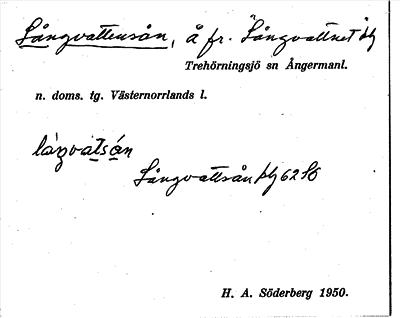 Långvattensån, å fr. "Långvattnet" blj
Trehörningsjö sn Ångermanl.
n. doms. tg. Västernorrlands l.
låŋvatsån
Långvattsån blj 62 SO
H. A. Söderberg 1950.